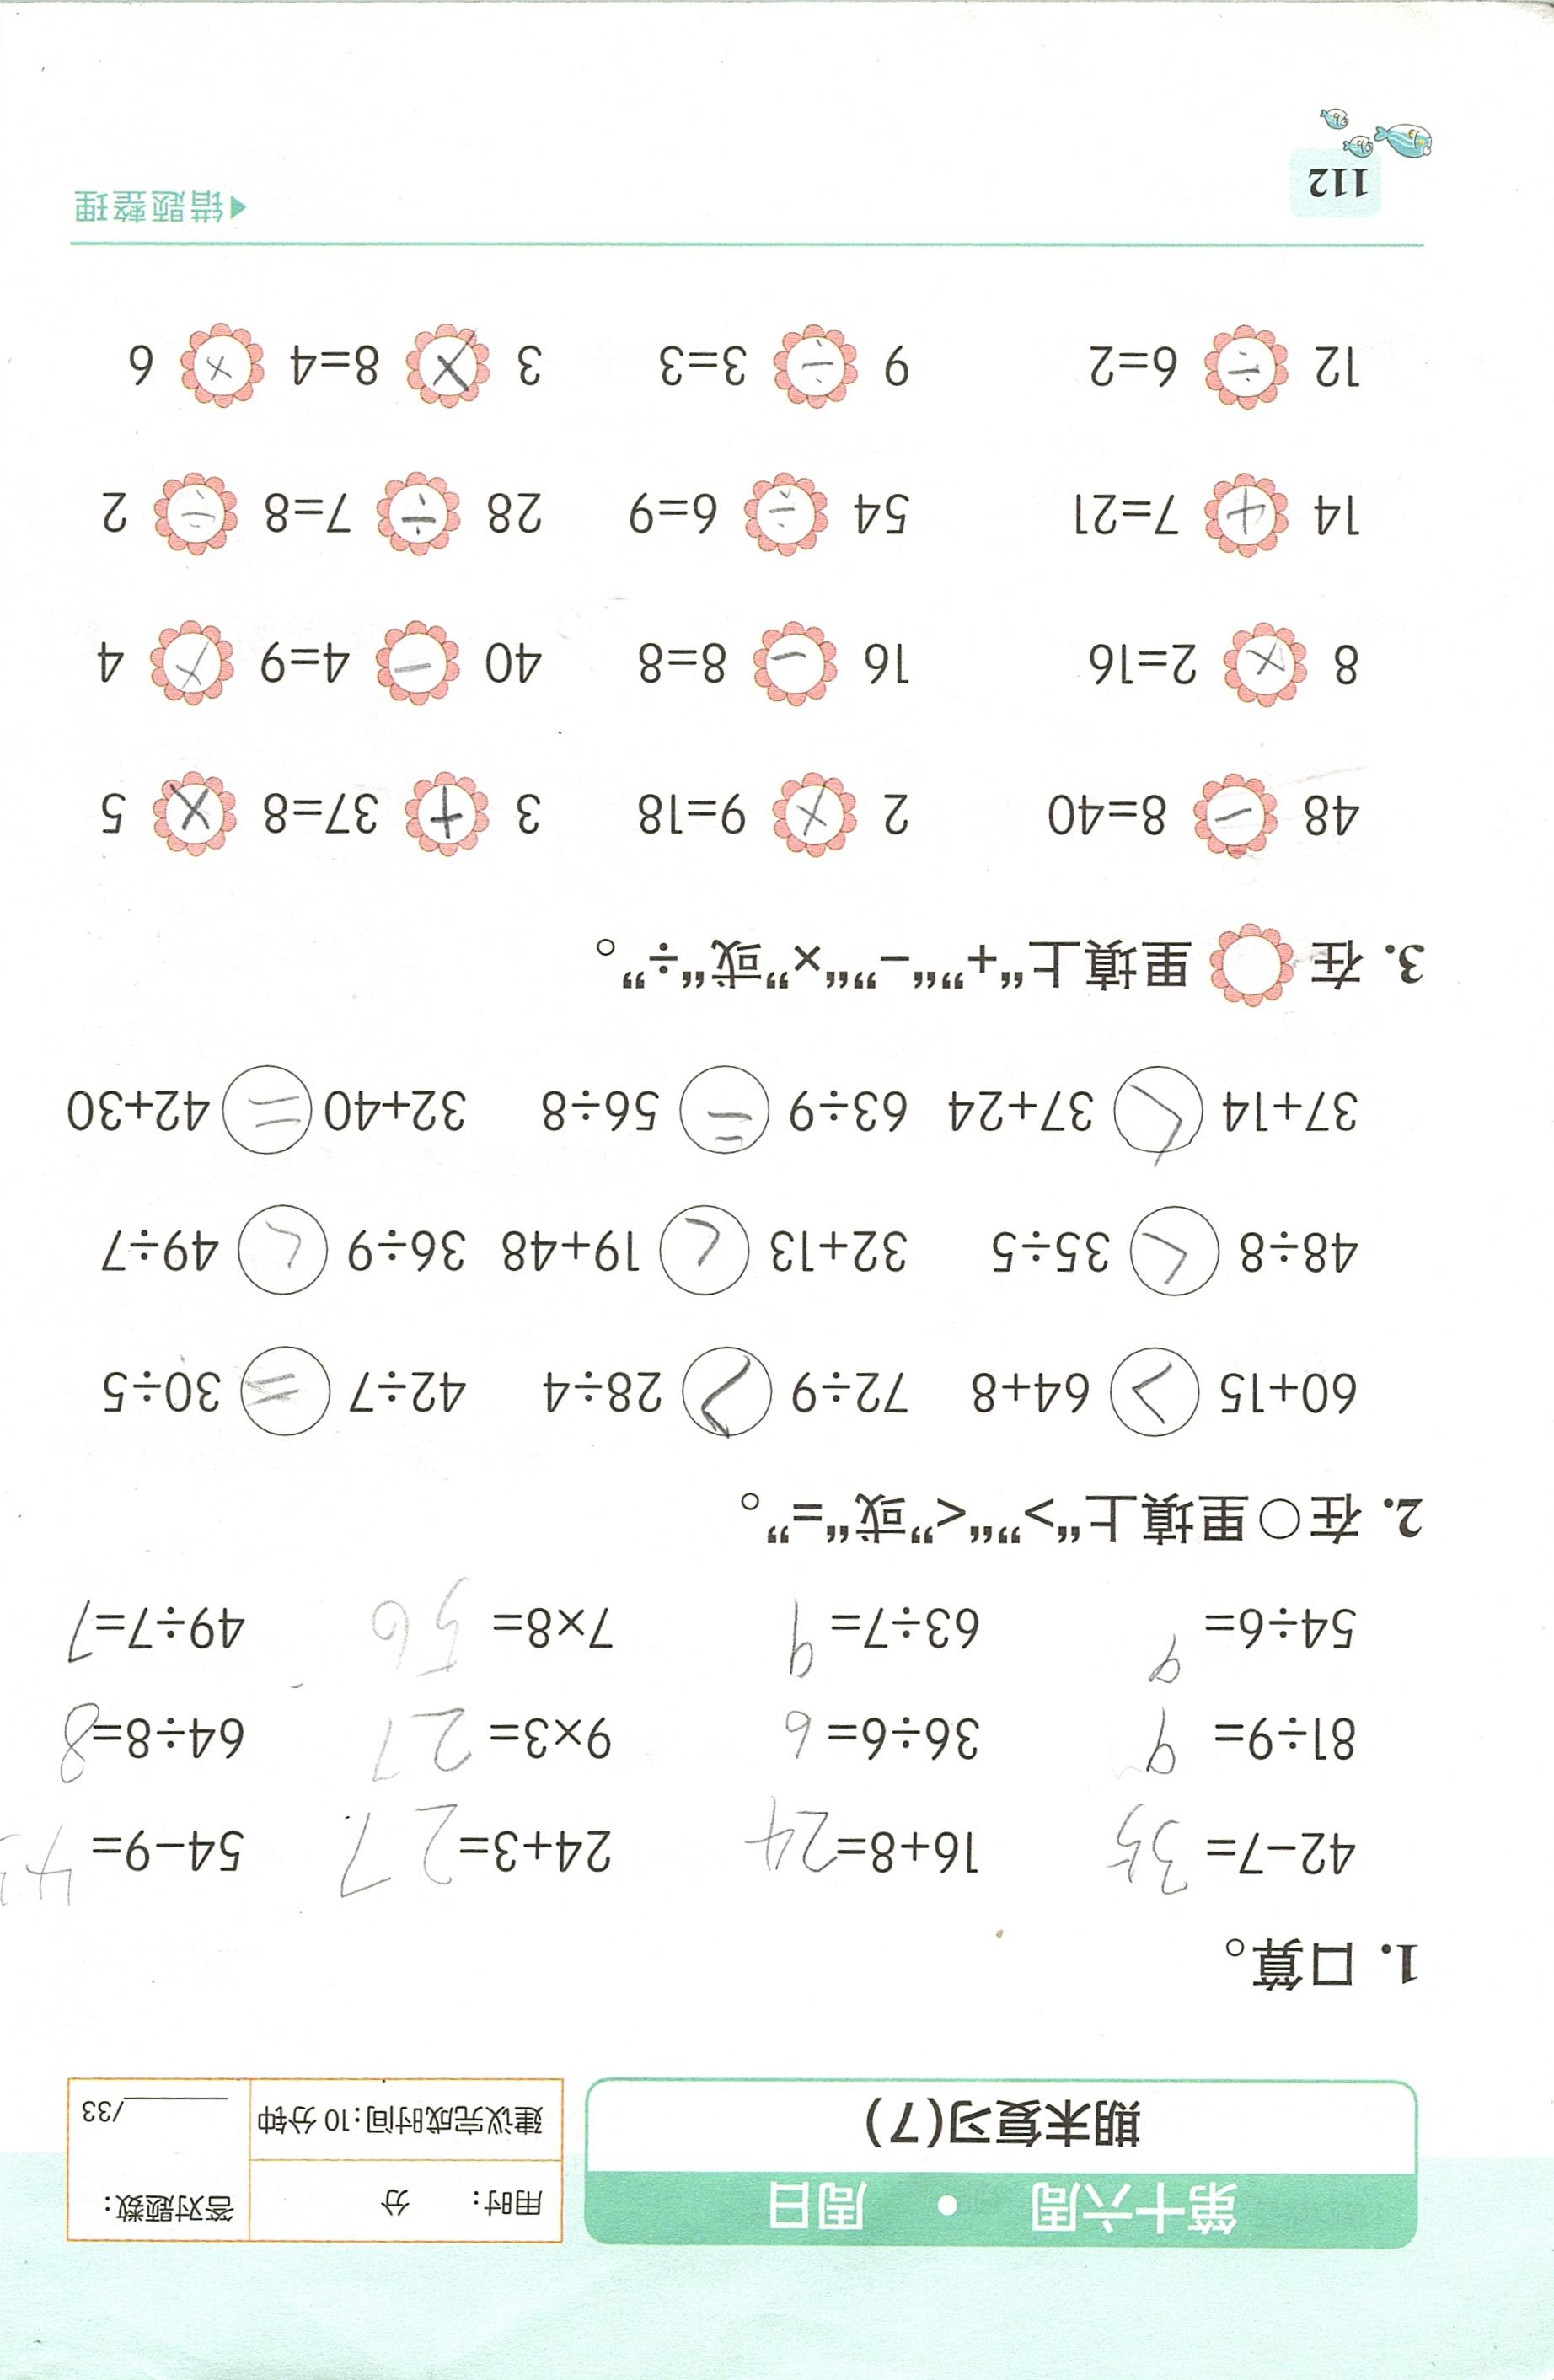 第十六周 • 周日
期末复习(7)
用时： 分
建议完成时间：10分钟
答对题数：
____/33
1. 口算。
42−7= 35 16+8=24 24+3=27 54−9= 45
81÷9= 9 36÷6= 6 9×3= 27 64÷8=8
54÷6= 9 63÷7= 9 7×8= 56 49÷7=7
2. 在○里填上“>”“<”或“=”。
60+15 > 64+8 72÷9 > 28÷4 42÷7 = 30÷5
48÷8 < 35÷5 32+13 < 19+48 36÷9 < 49÷7
37+14 < 37+24 63÷9 = 56÷8 32+40 = 42+30
3. 在 里填上“+”“−”“×”或“÷”。
48 − 8=40 2 × 9=18 3 + 37=8 × 5
8 × 2=16 16 − 8=8 40 − 4=9 × 4
14 + 7=21 54 ÷ 6=9 28 ÷ 7=8 ÷ 2
12 ÷ 6=2 9 ÷ 3=3 3 × 8=4 × 6
112
▶错题整理